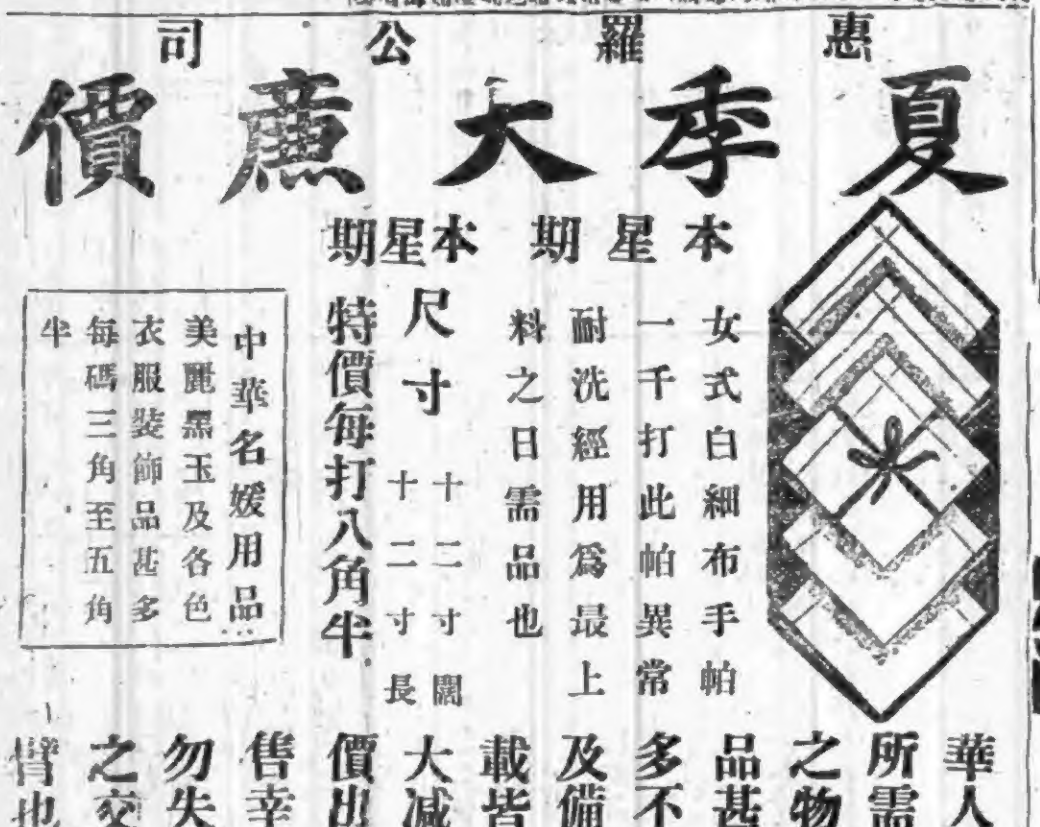 惠羅公司
夏季大廉價
本星期
女式白細布手帕
一千打此帕異常
耐洗經用爲最上
料之日需品也
本星期
尺寸
十二寸闊
十二寸長
特價每打八角半
中華名媛用品
美麗黑玉及各色
衣服裝飾品甚多
每碼三角至五角
半
華人
所需
之物
品甚
多不
及備
載皆
大減
價出
售幸
勿失
之交
臂也